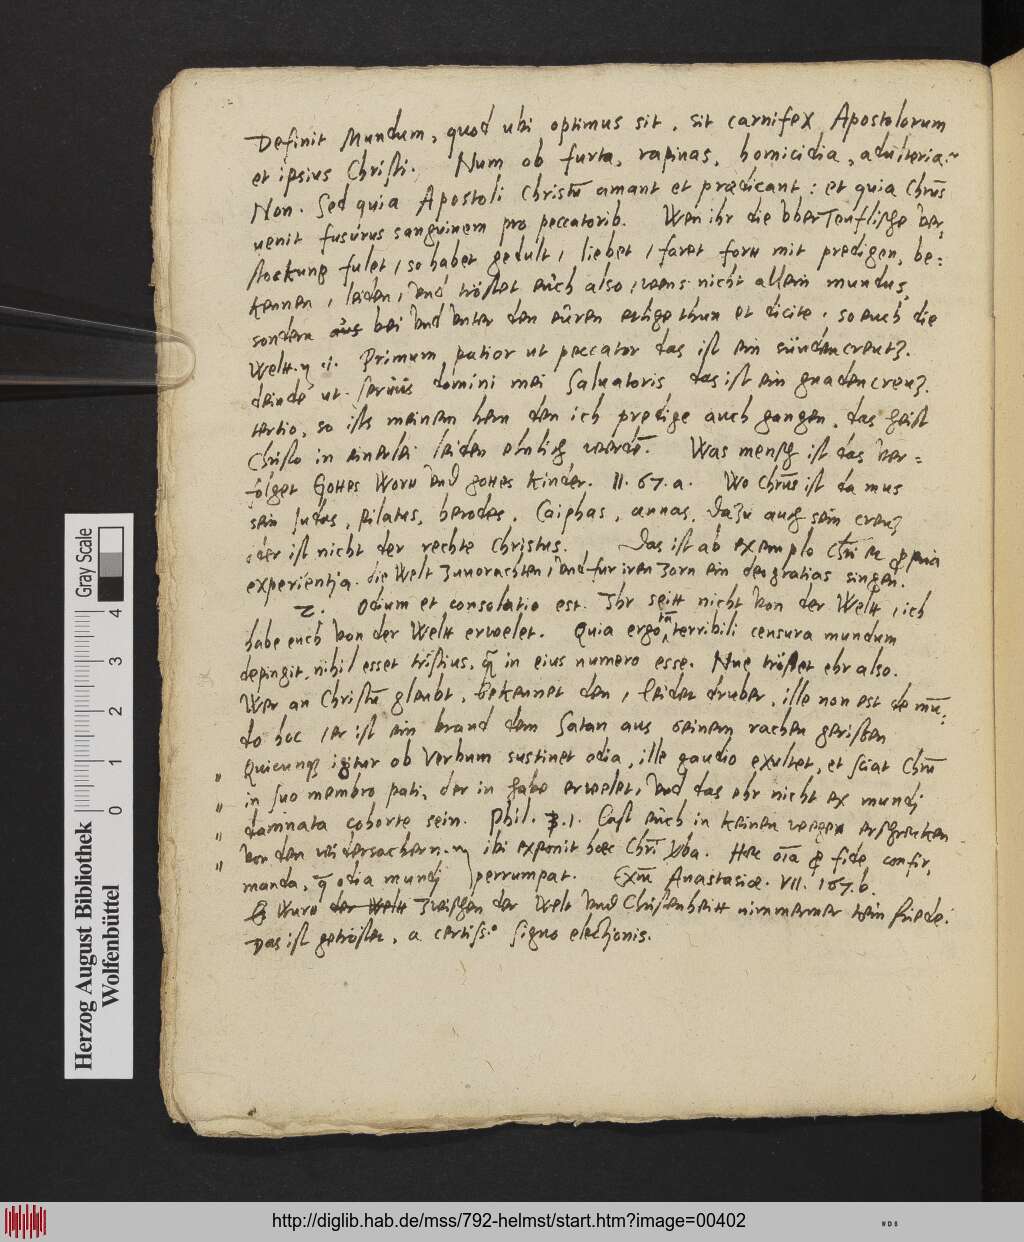 Definit Mundum, quod ubi optimus sit, sit carnifex Apostolorum
et ipsius Christi. Num ob furta, rapinas, homicidia, adulteria.
Non. Sed quia Apostoli Christū amant et prædicant: et quia Chrūs
venit fusurus sanguinem pro peccatorib. Wen ihr die Vber Teuflische ver,
stockung fulet, so habet gedult, liebet, faret fort mit predigen, be=
kennen, leiden, vnd tröstet euch also, wens nicht allein mundus,
sondern aus bei vnd vnter den euren etlige thun et dicite. so euch die
Welt. .i. Primum patior ut peccator das ist ein sündencreutz.
deinde ut seruus domini mei Saluatoris das ist ein gnadencreuz.
tertio, so ists meinem hern den ich predige auch gangen, das heist
Christo in einerlei leiden ehnlich werdē. Was mensch ist das ver=
folget Gottes Wort vnd gottes Kinder. II. 67. a. Wo Chrūs ist da mus
sein Judas, Pilatus, herodes, Caiphas, annas, dazu auch sein creuz
oder ist nicht der rechte Christus. Das ist ab exemplo
experientia. die Welt zuuorachten, vnd fur iren zorn ein deogratias singen.
2. Odium et consolatio est. Ihr seitt nicht von der Welt, ich
habe euch von der Welt erwelet. Quia ergo terribili censura mundum
depingit, nihil esset tristius, q̄ in eius numero esse. Nue tröstet ehr also.
Wer an Christū gleubt, bekennet den, leidet druber, ille non est de mū=
do hoc, er ist ein brand dem Satan aus seinem rachen gerissen
" Quicunq igitur ob Verbum sustinet odia, ille gaudio exultet, et sciat Chrm
" in suo membro pati, der in habe erwelet, vnd das ehr nicht ex mundj
" damnata cohorte sein. Phil. .1. Last euch in keinen wegen erschrecken
" von den widersachern. ibi exponit hæc Chri vba. Hæc oīa fide confir,
manda, q̄ odia mundj perrumpat. Exm Anastasiæ. VII. 167. b.
Es wurd der Welt zwischen der Welt vnd Christenheitt nimmermer kein friede.
Das ist getröstet, a certiss.o signo electionis.
Herzog August Bibliothek
Wolfenbüttel
Gray Scale
0 1 2 3 4
http://diglib.hab.de/mss/792-helmst/start.htm?image=00402